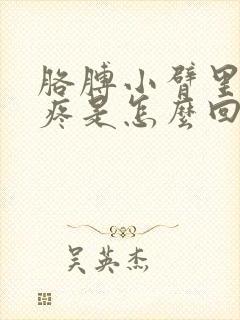 胳膊小臂里
疼是怎麼回
吴英杰